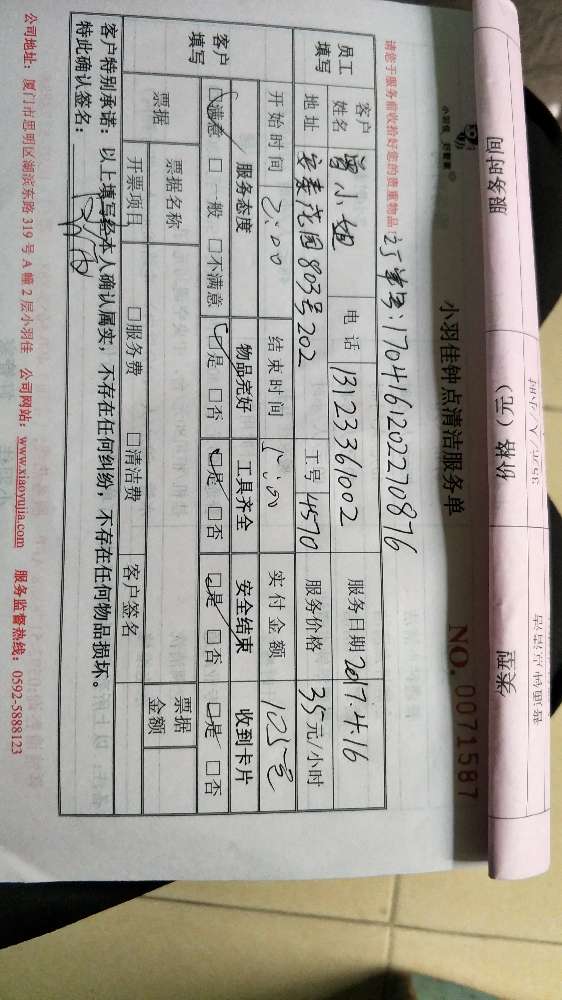 服务时间 价格（元） 类型
35元/人/小时
小羽佳 好管家
小羽佳钟点清洁服务单 NO. 0071587
请您于服务前收拾好您的贵重物品！ 订单号：1704161202270876
员工填写 客户姓名 曾小姐 电话 13123361002 服务日期 2017.4.16
地址 803号202 工号 4570 服务价格 35元/小时
开始时间 2:00 结束时间 5:00 实付金额 105元
客户填写 服务态度 物品完好 工具齐全 安全结束 收到卡片
☑满意 □一般 □不满意 ☑是 □否 ☑是 □否 ☑是 □否 ☑是 □否
票据 票据名称 票据金额
开票项目 □服务费 □清洁费 客户签名
客户特别承诺：以上填写经本人确认属实，不存在任何纠纷，不存在任何物品损坏。
特此确认签名：
公司地址：厦门市思明区湖滨东路 319 号 A 幢 2 层小羽佳 公司网站：www.xiaoyujia.com 服务监督热线：0592-5888123